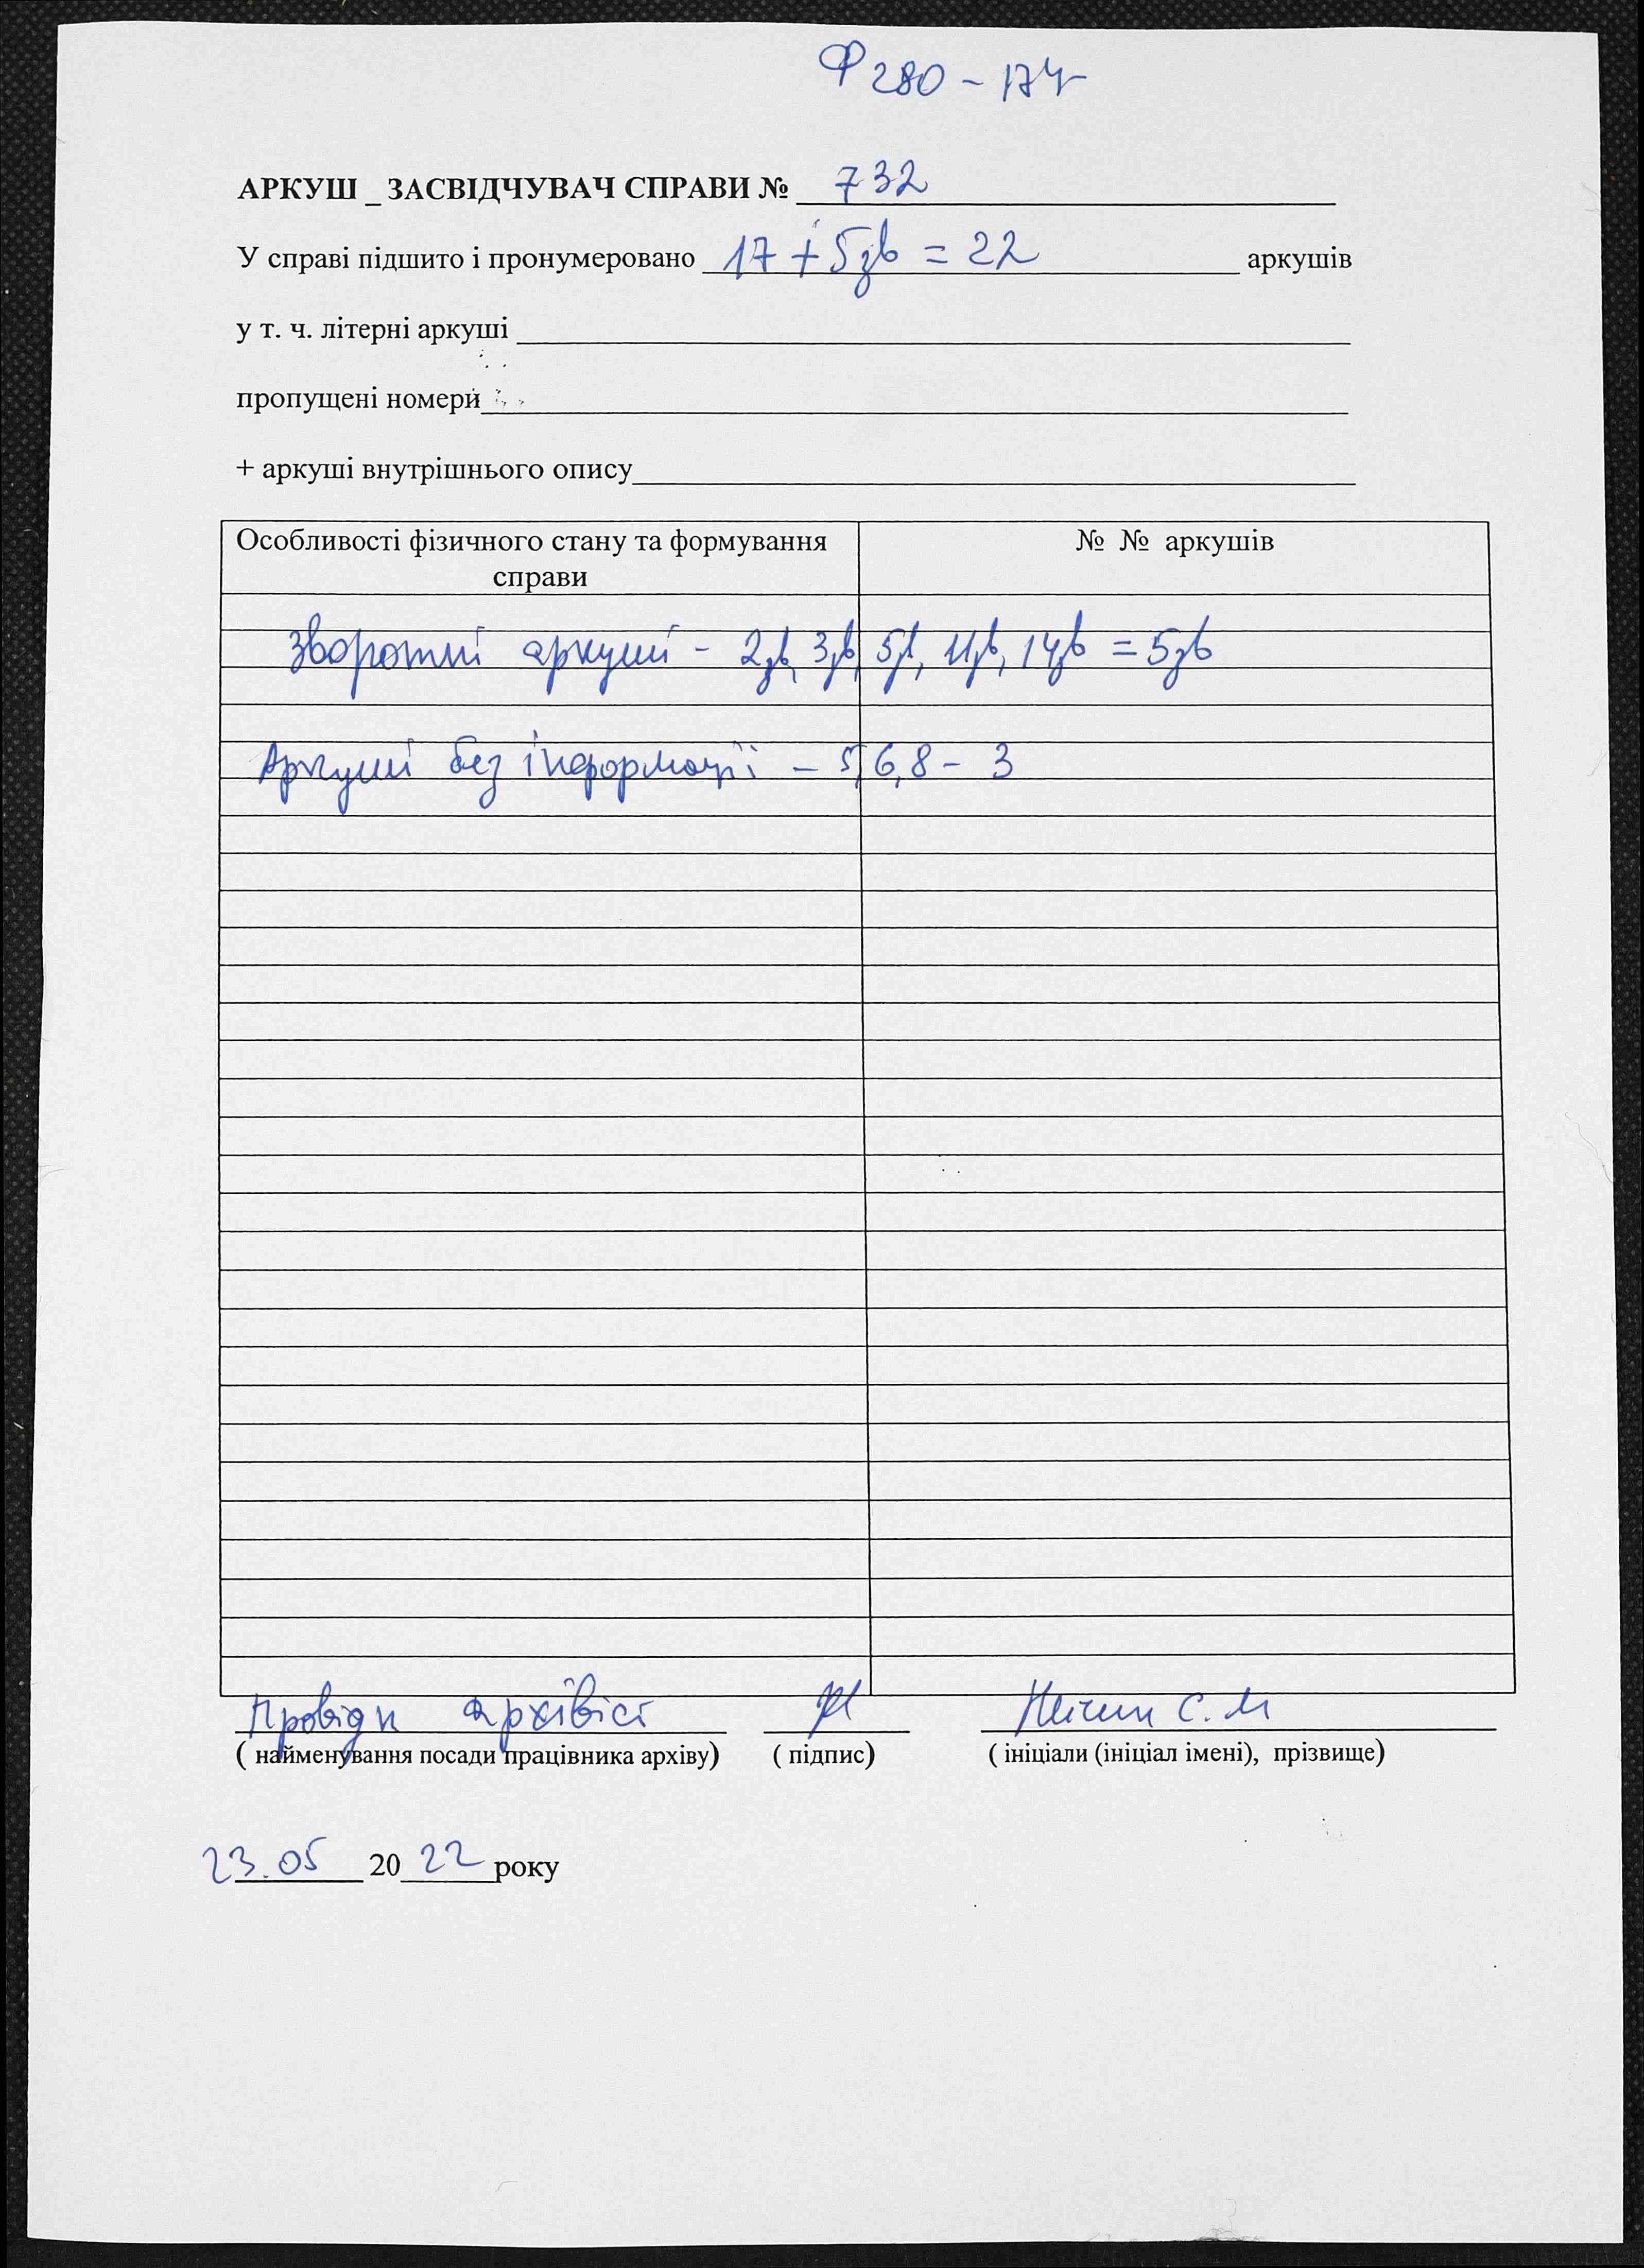 Ф 280 - 174
АРКУШ _ ЗАСВІДЧУВАЧ СПРАВИ № 732
У справі підшито і пронумеровано 17 + 5зв = 22 аркушів
у т. ч. літерні аркуші
пропущені номери
+ аркуші внутрішнього опису
Особливості фізичного стану та формування справи
№ № аркушів
Зворотні аркуші - 2зв, 3зв, 5зв, 11зв, 14зв = 5зв
Аркуші без інформації - 5, 6, 8 - 3
Провідн архівіст С. М
( найменування посади працівника архіву) ( підпис) ( ініціали (ініціал імені), прізвище)
23.05 2022 року